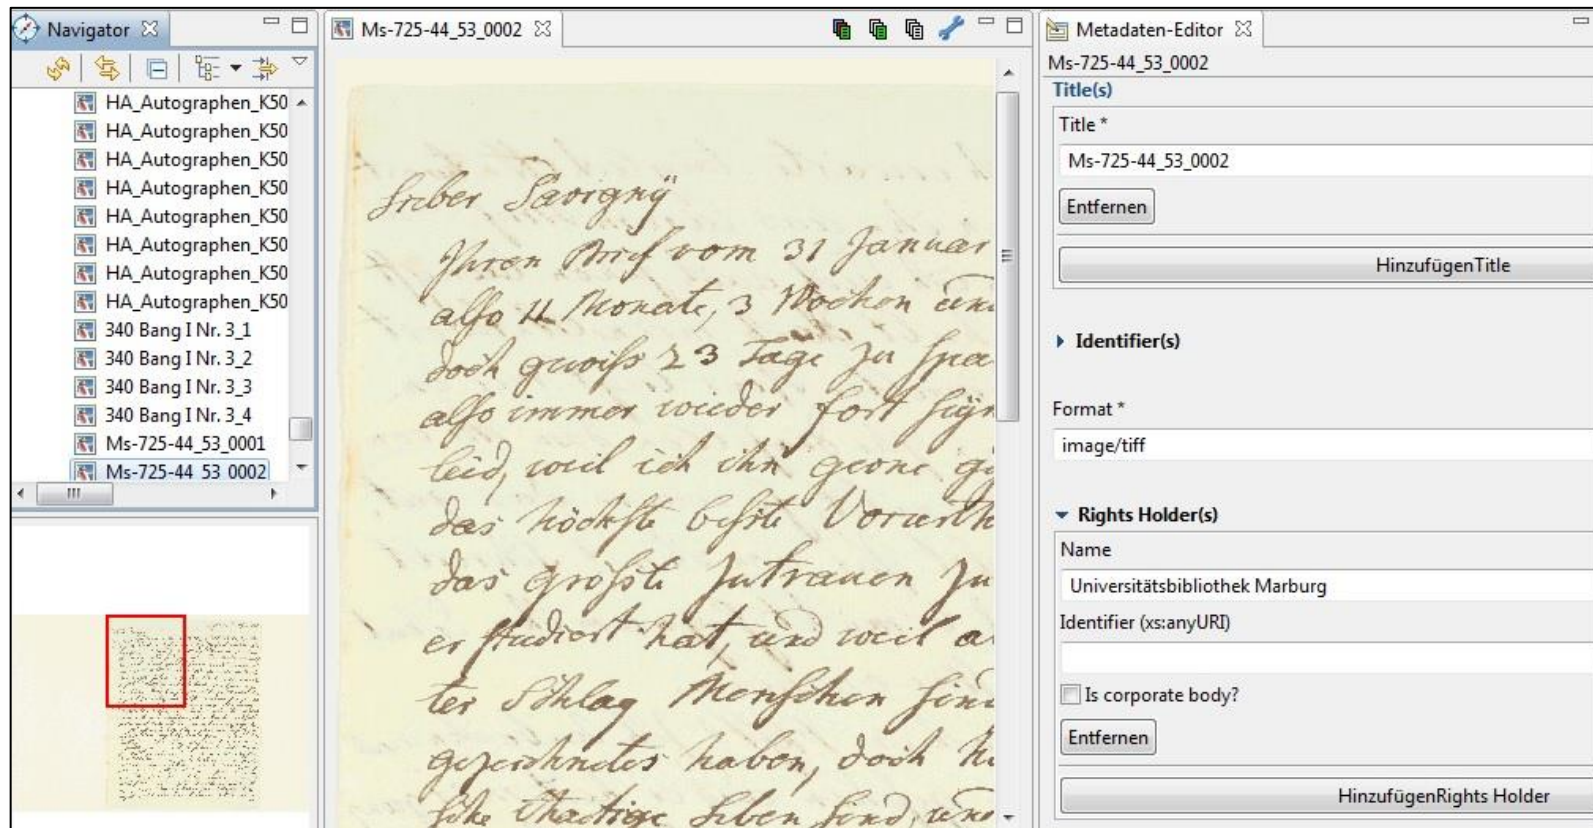 Navigator
HA_Autographen_K50
HA_Autographen_K50
HA_Autographen_K50
HA_Autographen_K50
HA_Autographen_K50
HA_Autographen_K50
HA_Autographen_K50
HA_Autographen_K50
340 Bang I Nr. 3_1
340 Bang I Nr. 3_2
340 Bang I Nr. 3_3
340 Bang I Nr. 3_4
Ms-725-44_53_0001
Ms-725-44_53_0002
Ms-725-44_53_0002
Lieber Savigny
Ihren Brief vom 31 Januar
also 4 Monate, 3 Wochen und
doch gewiss 23 Tage zu
also immer wieder fort
leid, weil ich ihn gerne
das höchste beste
das größte Zutrauen zu
er studiert hat, und weil
ter Schlag Menschen sind
haben, doch
thaetige sind, und
Metadaten-Editor
Ms-725-44_53_0002
Title(s)
Title *
Ms-725-44_53_0002
Entfernen
HinzufügenTitle
Identifier(s)
Format *
image/tiff
Rights Holder(s)
Name
Universitätsbibliothek Marburg
Identifier (xs:anyURI)
Is corporate body?
Entfernen
HinzufügenRights Holder